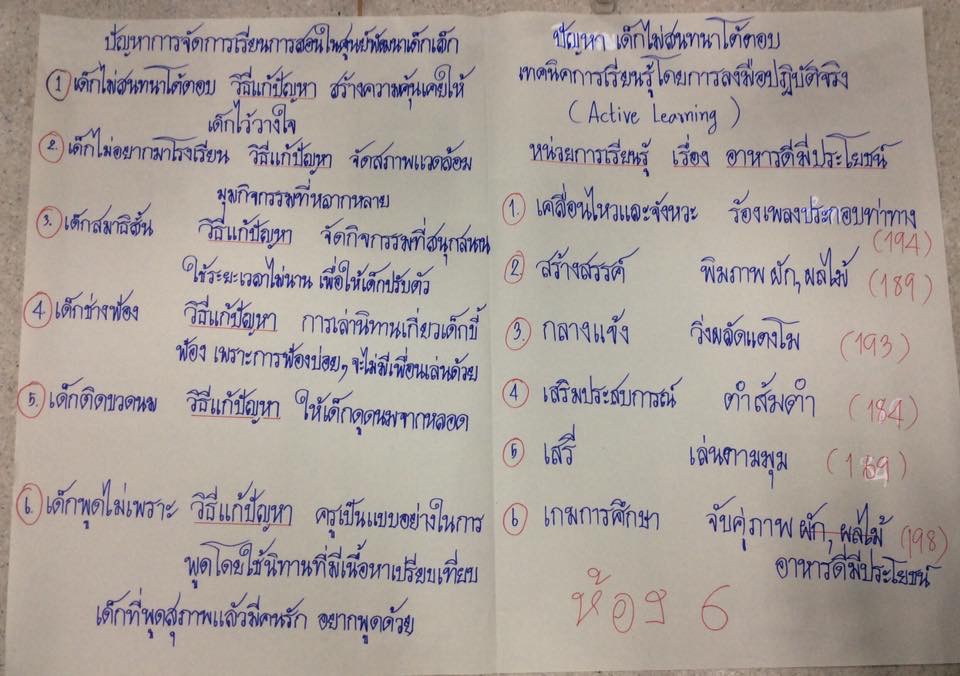 ปัญหาการจัดการเรียนการสอนในศูนย์พัฒนาเด็กเล็ก
1 เด็กไม่สนทนาโต้ตอบ วิธีแก้ปัญหา สร้างความคุ้นเคยให้
เด็กไว้วางใจ
2. เด็กไม่อยากมาโรงเรียน วิธีแก้ปัญหา จัดสภาพแวดล้อม
มุมกิจกรรมที่หลากหลาย
3. เด็กสมาธิสั้น วิธีแก้ปัญหา จัดกิจกรรมที่สนุกสนาน
ใช้ระยะเวลาไม่นาน เพื่อให้เด็กปรับตัว
4 เด็กช่างฟ้อง วิธีแก้ปัญหา การเล่านิทานเกี่ยวเด็กขี้
ฟ้อง เพราะการฟ้องบ่อยๆ จะไม่มีเพื่อนเล่นด้วย
5. เด็กติดขวดนม วิธีแก้ปัญหา ให้เด็กดูดนมจากหลอด
6. เด็กพูดไม่เพราะ วิธีแก้ปัญหา ครูเป็นแบบอย่างในการ
พูดโดยใช้นิทานที่มีเนื้อหาเปรียบเทียบ
เด็กที่พูดสุภาพแล้วมีคนรัก อยากพูดด้วย
ปัญหา เด็กไม่สนทนาโต้ตอบ
เทคนิคการเรียนรู้โดยการลงมือปฏิบัติจริง
(Active Learning)
หน่วยการเรียนรู้ เรื่อง อาหารดีมีประโยชน์
1. เคลื่อนไหวและจังหวะ ร้องเพลงประกอบท่าทาง
(194)
2. สร้างสรรค์ พิมภาพ ผัก, ผลไม้ (189)
3. กลางแจ้ง วิ่งผลัดแตงโม (193)
4 เสริมประสบการณ์ ตำส้มตำ (184)
5 เสรี เล่นตามมุม (189)
6 เกมการศึกษา จับคู่ภาพ ผัก, ผลไม้ (198)
อาหารดีมีประโยชน์
ห้อง 6